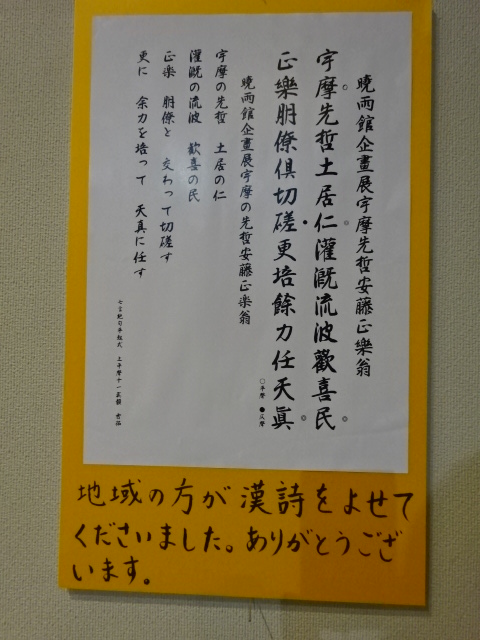 曉雨館企畫展宇摩先哲安藤正樂翁
宇摩先哲土居仁灌漑流波歡喜民
正樂朋僚倶切磋更培餘力任天眞
○平声 ●仄声
曉雨館企畫展宇摩の先哲安藤正楽翁
宇摩の先哲 土居の仁
灌漑の流波 歡喜の民
正楽 朋僚と 交わって切磋す
更に 余力を培って 天真に任す
七言絶句平起式 上平声十一真韻
地域の方が漢詩をよせて
くださいました。ありがとうござ
います。